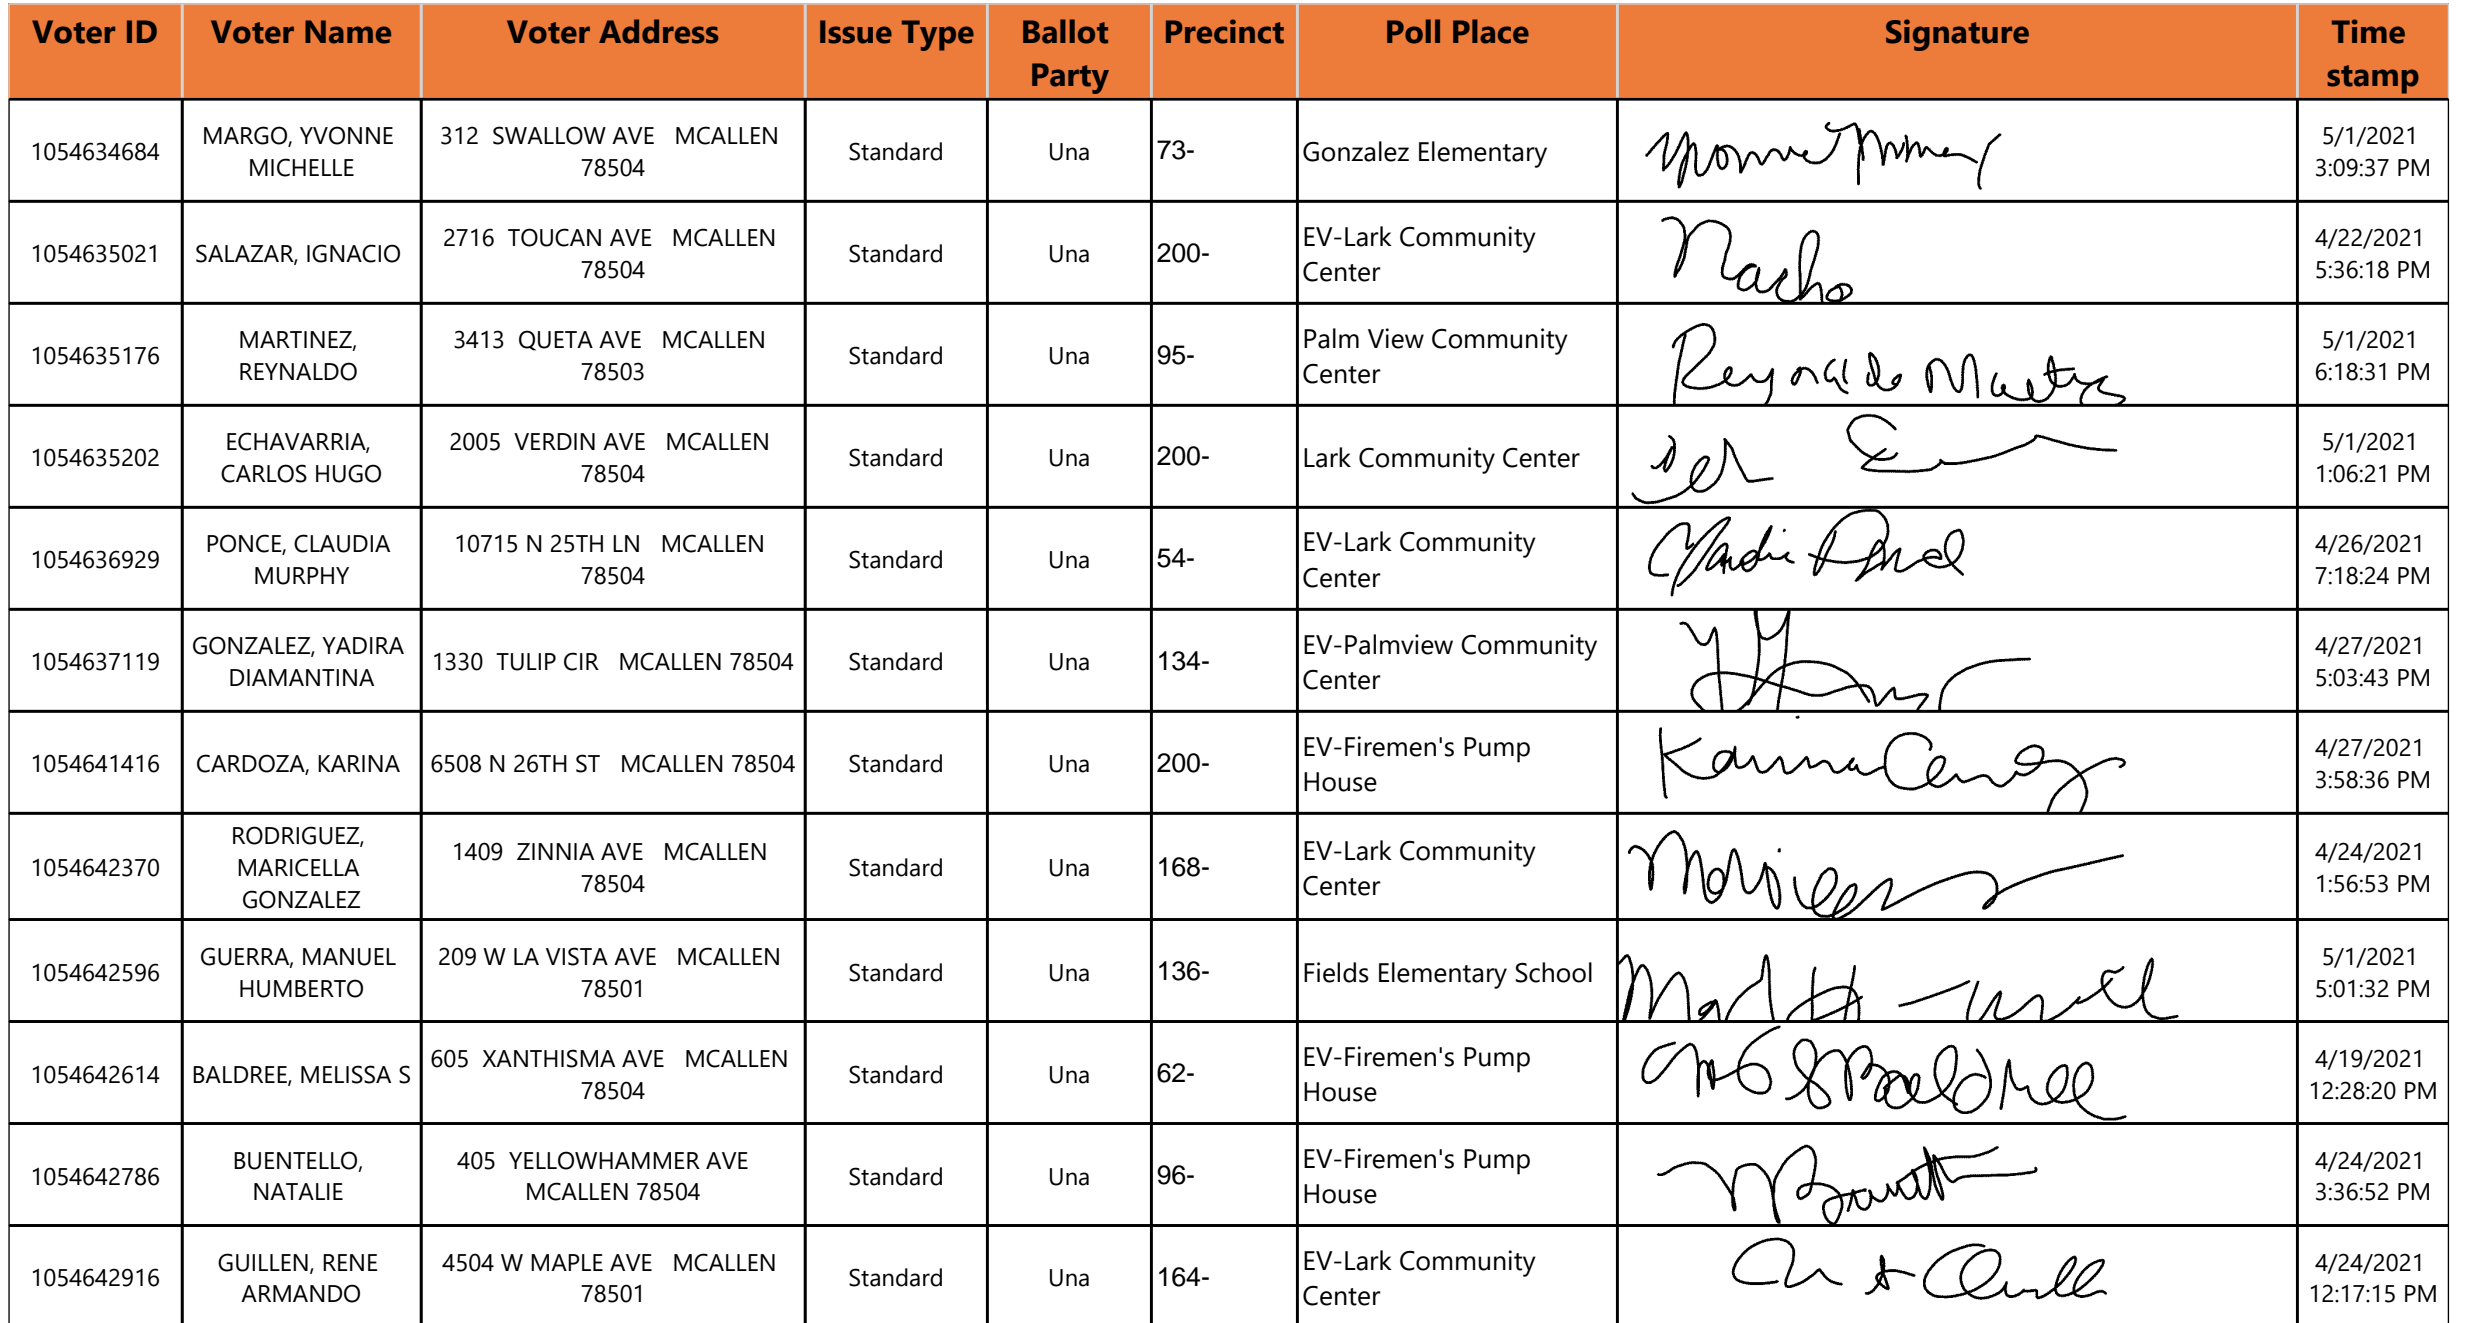 Voter ID Voter Name Voter Address Issue Type Ballot Party Precinct Poll Place Signature Time stamp
1054634684 MARGO, YVONNE MICHELLE 312 SWALLOW AVE MCALLEN 78504 Standard Una 73- Gonzalez Elementary Yvonne 5/1/2021 3:09:37 PM
1054635021 SALAZAR, IGNACIO 2716 TOUCAN AVE MCALLEN 78504 Standard Una 200- EV-Lark Community Center Nacho 4/22/2021 5:36:18 PM
1054635176 MARTINEZ, REYNALDO 3413 QUETA AVE MCALLEN 78503 Standard Una 95- Palm View Community Center Reynaldo 5/1/2021 6:18:31 PM
1054635202 ECHAVARRIA, CARLOS HUGO 2005 VERDIN AVE MCALLEN 78504 Standard Una 200- Lark Community Center 5/1/2021 1:06:21 PM
1054636929 PONCE, CLAUDIA MURPHY 10715 N 25TH LN MCALLEN 78504 Standard Una 54- EV-Lark Community Center 4/26/2021 7:18:24 PM
1054637119 GONZALEZ, YADIRA DIAMANTINA 1330 TULIP CIR MCALLEN 78504 Standard Una 134- EV-Palmview Community Center 4/27/2021 5:03:43 PM
1054641416 CARDOZA, KARINA 6508 N 26TH ST MCALLEN 78504 Standard Una 200- EV-Firemen's Pump House Karina 4/27/2021 3:58:36 PM
1054642370 RODRIGUEZ, MARICELLA GONZALEZ 1409 ZINNIA AVE MCALLEN 78504 Standard Una 168- EV-Lark Community Center 4/24/2021 1:56:53 PM
1054642596 GUERRA, MANUEL HUMBERTO 209 W LA VISTA AVE MCALLEN 78501 Standard Una 136- Fields Elementary School 5/1/2021 5:01:32 PM
1054642614 BALDREE, MELISSA S 605 XANTHISMA AVE MCALLEN 78504 Standard Una 62- EV-Firemen's Pump House 4/19/2021 12:28:20 PM
1054642786 BUENTELLO, NATALIE 405 YELLOWHAMMER AVE MCALLEN 78504 Standard Una 96- EV-Firemen's Pump House 4/24/2021 3:36:52 PM
1054642916 GUILLEN, RENE ARMANDO 4504 W MAPLE AVE MCALLEN 78501 Standard Una 164- EV-Lark Community Center 4/24/2021 12:17:15 PM